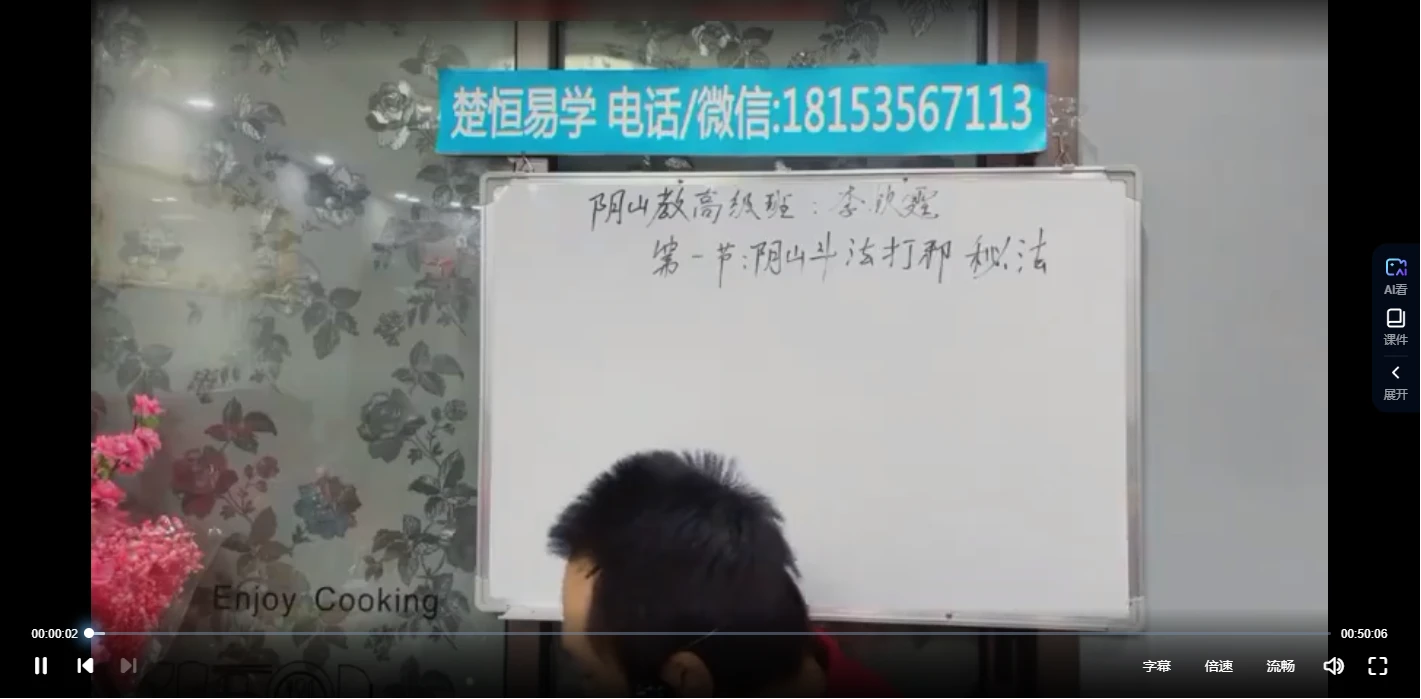 楚恒易学 电话/微信:18153567113
阴山教高级班：李欣霆
第一节:阴山斗法打邪秘法
Enjoy Cooking
AI看
课件
展开
00:00:02
00:50:06
字幕
倍速
流畅